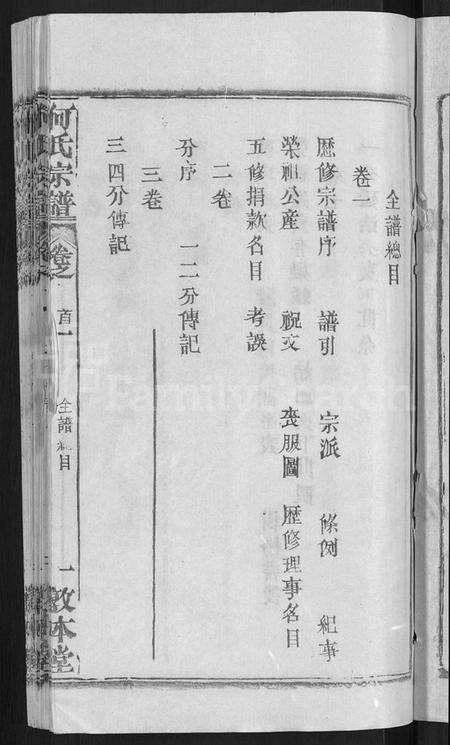 全譜總目
卷一
歷修宗譜序 譜引 宗派 條例 紀事
榮祖公產 祝文 喪服圖 歷修理事名目
五修捐款名目 考誤
二卷
分序 一二分傳記
三卷
三四分傳記
何氏宗譜 卷之 首一 全譜總目 一 敦本堂